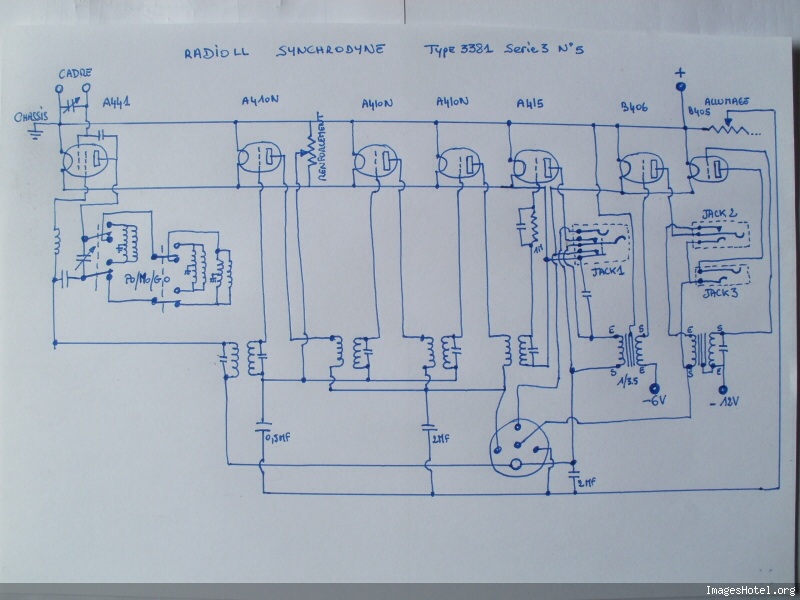 RADIOLL SYNCHRODYNE Type 3381 Serie 3 N°5
CADRE
+
A441
A410N
A410N
A410N
A415
B406
B405
ALLUMAGE
CHASSIS
RENFORCEMENT
JACK 2
1M
JACK 1
JACK 3
PO/MO/GO
E
S
E
S
S
E
S
E
1/3.5
-6V
-12V
0,5MF
2MF
2MF
ImagesHotel.org